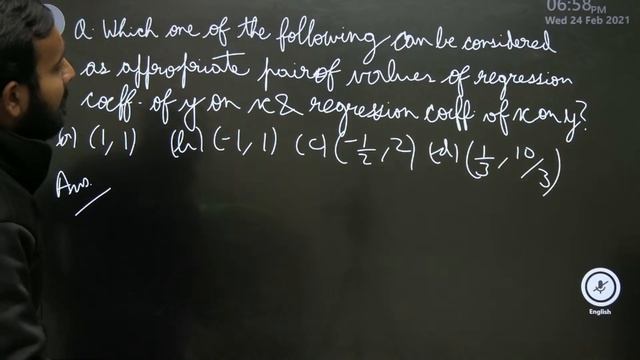 06:58PM
Wed 24 Feb 2021
Q. Which one of the following can be considered
as appropriate pair of values of regression
coeff. of y on x & regression coeff of x on y?
a) (1, 1) (b) (-1, 1) (c) (-1/2, 2) (d) (1/3, 10/3)
Ans.
English